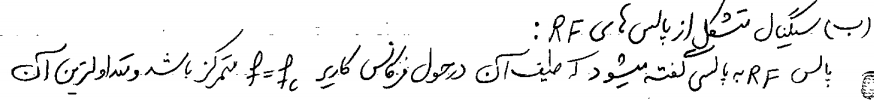 (ب) سیگنال متشکل از پالس های RF :
پالس RF به پالسی گفته میشود که طیف آن در حول فرکانس کاریر f=fc متمرکز باشد و متداولترین آن